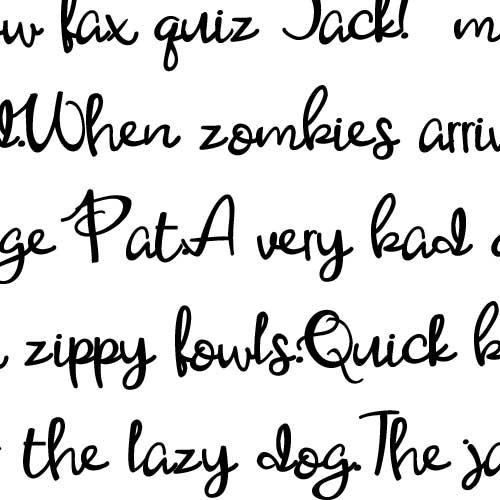 ow fax quiz Jack! m
d.When zombies arriv
ge Pat.A very bad
zippy fowls.Quick b
the lazy dog.The ja